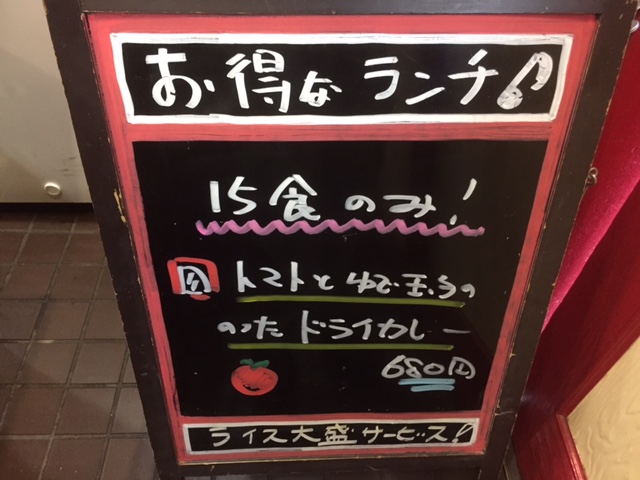 お得なランチ♪
15食のみ!
肉 トマトとゆで玉子の
のったドライカレー
680円
ライス大盛サービス!